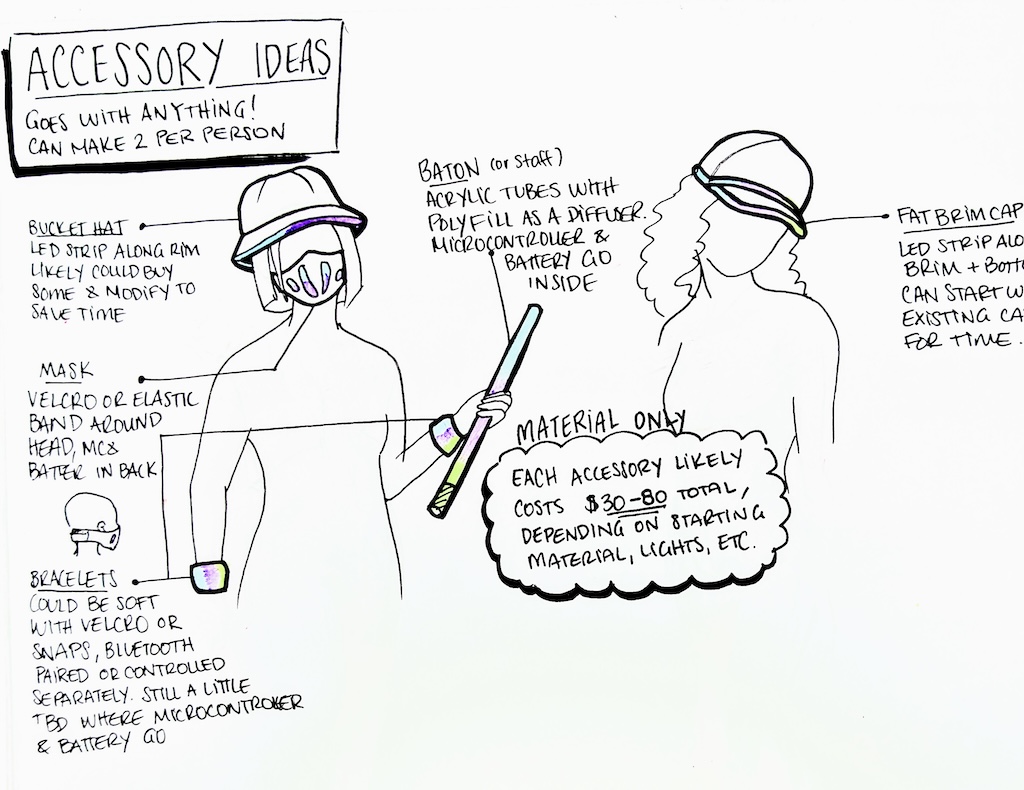 ACCESSORY IDEAS
GOES WITH ANYTHING!
CAN MAKE 2 PER PERSON
BUCKET HAT
LED STRIP ALONG RIM
LIKELY COULD BUY
SOME & MODIFY TO
SAVE TIME
MASK
VELCRO OR ELASTIC
BAND AROUND
HEAD, MC &
BATTER IN BACK
BRACELETS
COULD BE SOFT
WITH VELCRO OR
SNAPS, BLUETOOTH
PAIRED OR CONTROLLED
SEPARATELY. STILL A LITTLE
TBD WHERE MICROCONTROLLER
& BATTERY GO
BATON (or staff)
ACRYLIC TUBES WITH
POLYFILL AS A DIFFUSER.
MICROCONTROLLER &
BATTERY GO
INSIDE
MATERIAL ONLY
EACH ACCESSORY LIKELY
COSTS $30-80 TOTAL,
DEPENDING ON STARTING
MATERIAL, LIGHTS, ETC.
FAT BRIM CAP
LED STRIP ALO
BRIM + BOTTO
CAN START W
EXISTING CA
FOR TIME.